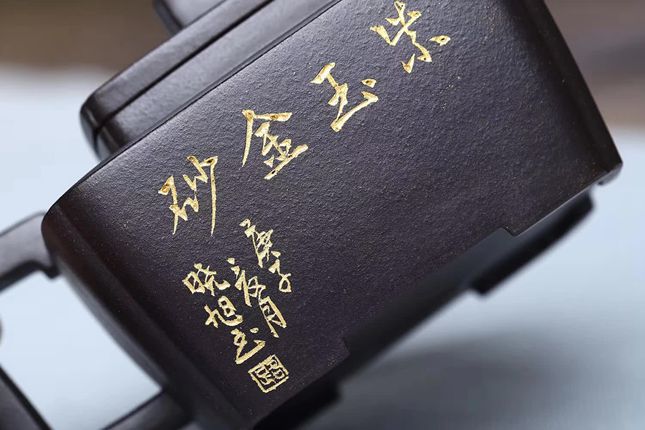 紫玉金砂
庚子
月
晓旭